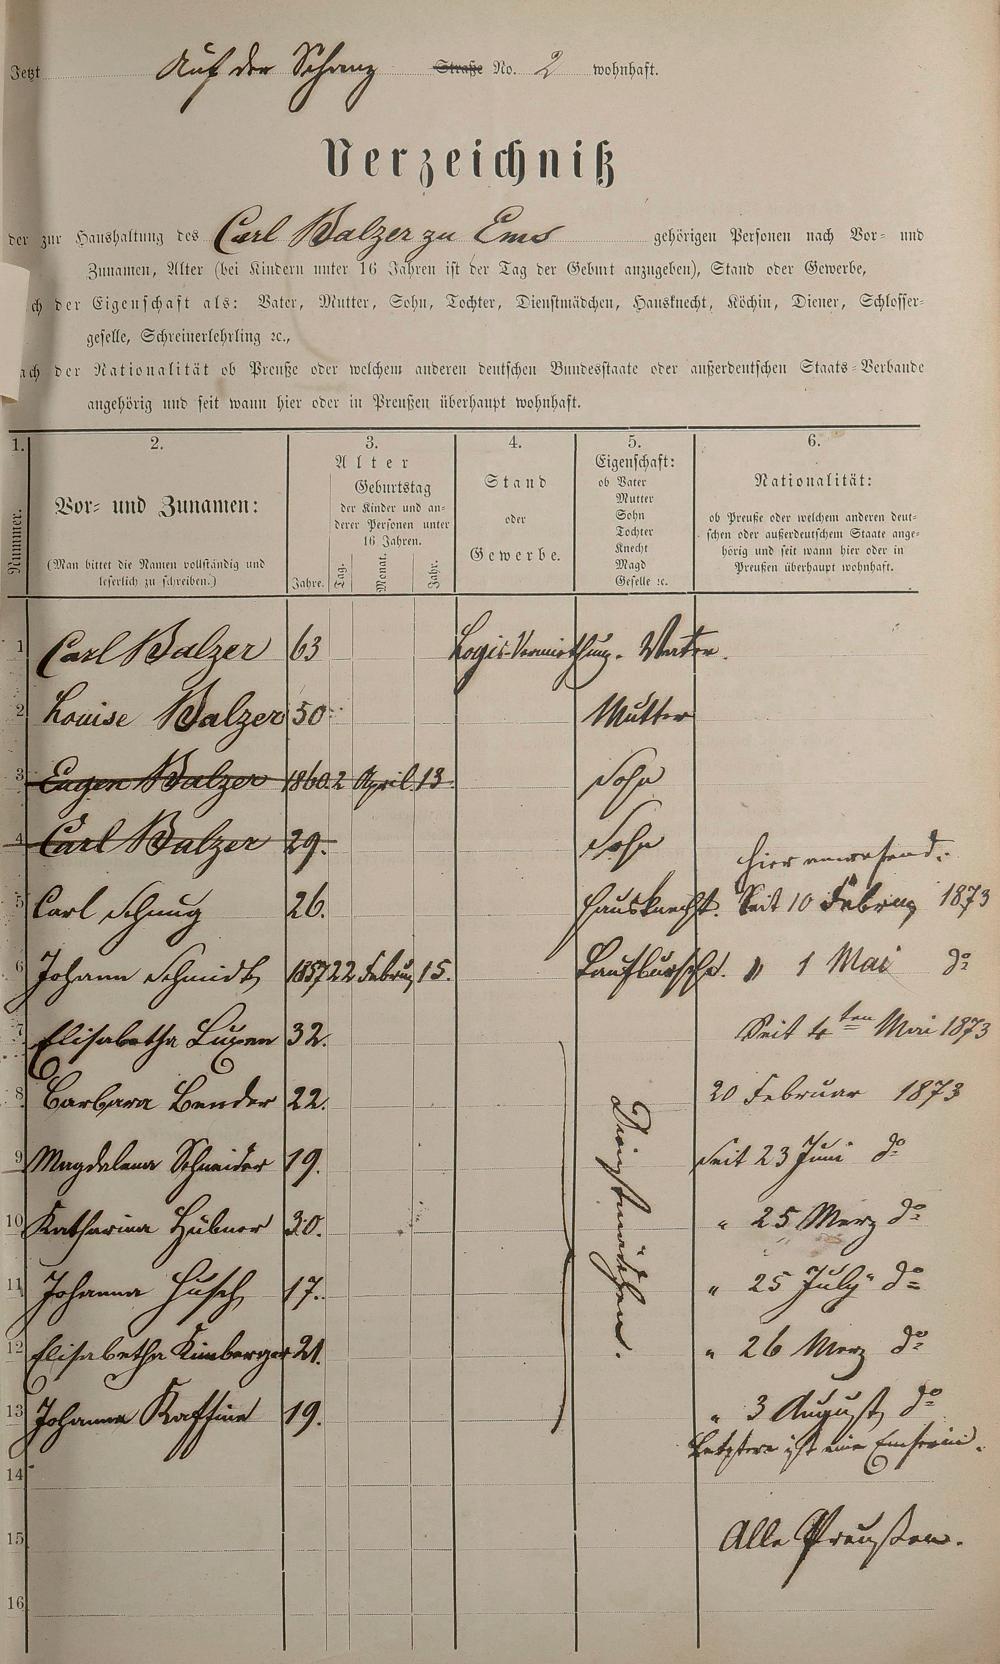 Jetzt Auf der Schanz Straße No. 2 wohnhaft.
Verzeichniß
der zur Haushaltung des Carl Balzer zu Ems gehörigen Personen nach Vor- und
Zunamen, Alter (bei Kindern unter 16 Jahren ist der Tag der Geburt anzugeben), Stand oder Gewerbe,
ch der Eigenschaft als: Vater, Mutter, Sohn, Tochter, Dienstmädchen, Hausknecht, Köchin, Diener, Schlosser-
geselle, Schreinerlehrling ꝛc.,
ach der Nationalität ob Preuße oder welchem anderen deutschen Bundesstaate oder außerdeutschen Staats-Verbande
angehörig und seit wann hier oder in Preußen überhaupt wohnhaft.
1. 2. 3. 4. 5. 6.
Nummer.
Vor- und Zunamen:
(Man bittet die Namen vollständig und
leserlich zu schreiben.)
Alter
Geburtstag
der Kinder und an-
derer Personen unter
16 Jahren.
Jahre. Tag. Monat. Jahr.
Stand
oder
Gewerbe.
Eigenschaft:
ob Vater
Mutter
Sohn
Tochter
Knecht
Magd
Geselle ꝛc.
Nationalität:
ob Preuße oder welchem anderen deut-
schen oder außerdeutschem Staate ange-
hörig und seit wann hier oder in
Preußen überhaupt wohnhaft.
1 Carl Balzer 63 Logis-Vermiethung. Vater.
2 Louise Balzer 50 Mutter
3 Eugen Balzer 1860. 2 April 13. Sohn
4 Carl Balzer 29. Sohn
hier anwesend.
5 Carl Schnug 26. Hausknecht. Seit 10 Februar 1873
6 Johann Schmidt 1857 22 Februar 15. Laufbursche. " 1 Mai do
7 Elisabetha 32. Seit 4ten Mai 1873
8 Barbara Bender 22. 20 Februar 1873
9 Magdalena Schneider 19. Seit 23 Juni do
10 Katharina Hübner 30. " 25 Merz do
11 Johanna Husch 17. " 25 July do
12 Elisabetha Kimberger 21. " 26 Merz do
13 Johanna Kaffine 19. " 3 August do
Dienstmädchen.
Letztere ist eine Emserin.
14
15 Alle Preußen.
16